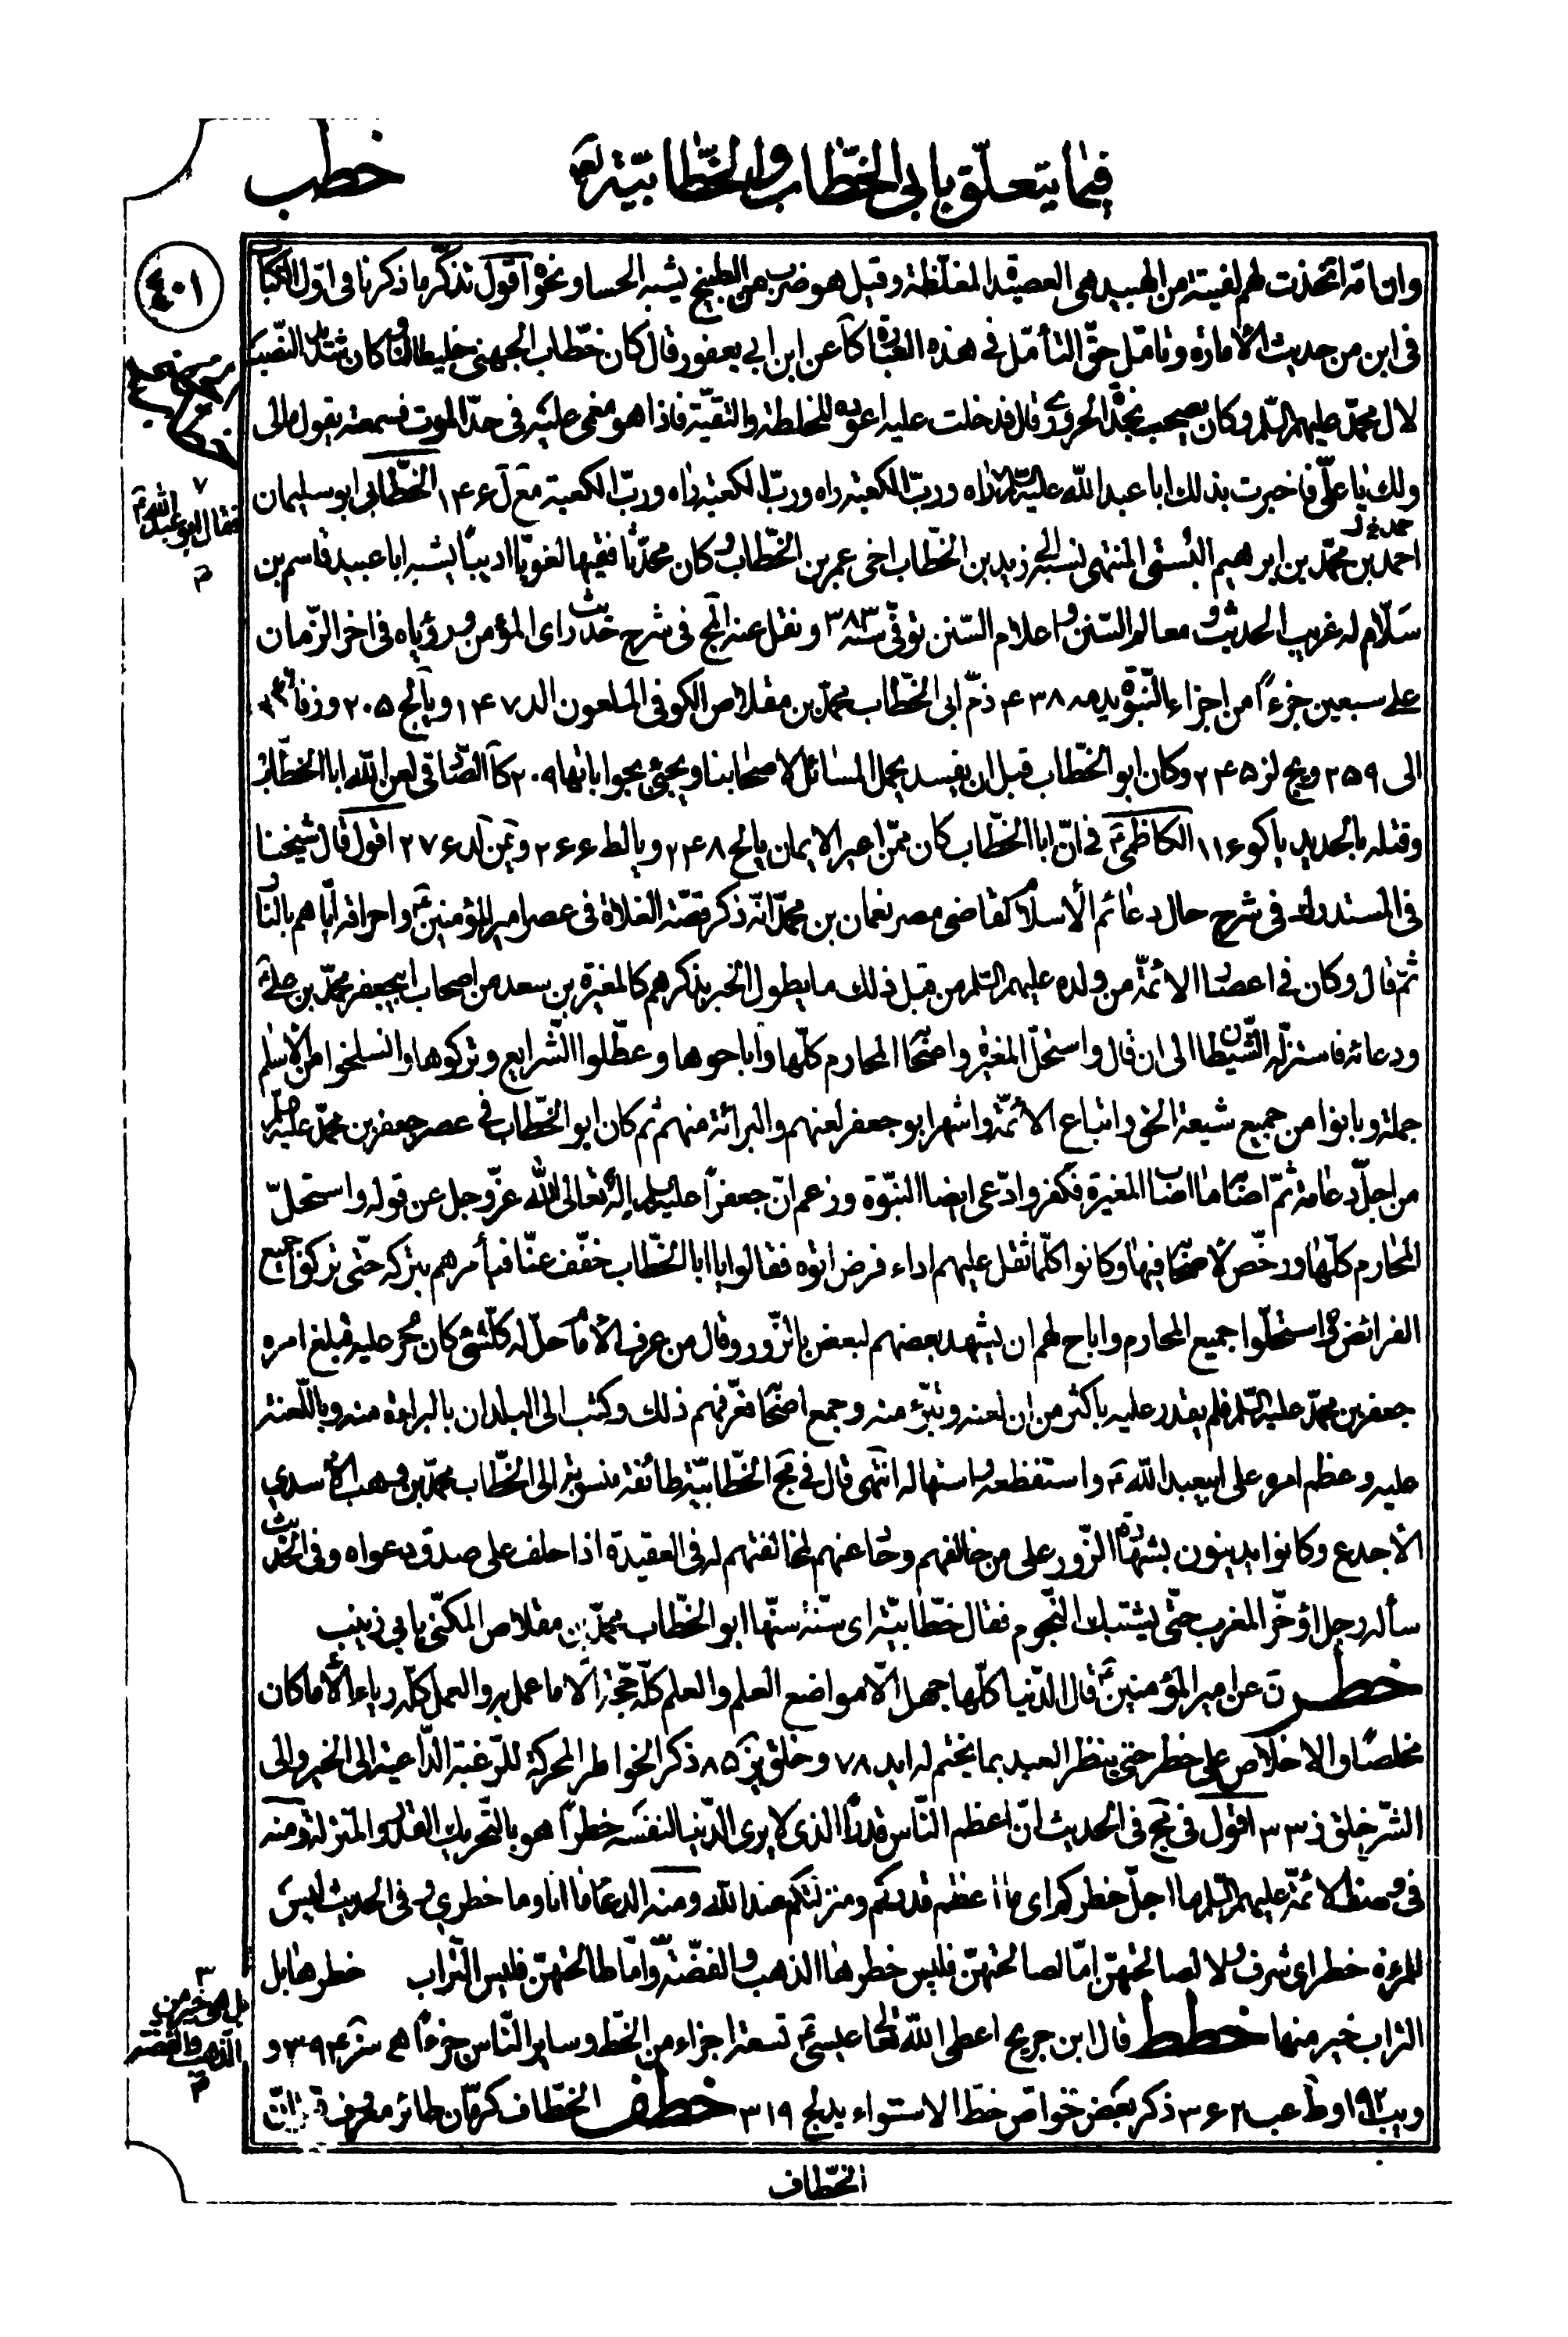 خطب
فيما يتعلّق بابى الخطّاب والخطّابيّة لعم
٤٠١
وان امّه اتّخذت لهم لفيتة من الهبيد هى العصيدة المغلّظة وقيل هو ضرب من الطبيخ يشبه الحساء ونحوه اقول تذكّر ما ذكرنا فى اوّل الكتاب
فى ابن من حديث الأمارة وتامّل حقّ التأمّل فى هذه العبارة كا عن ابن ابي يعفور قال كان خطّاب الجهنى خليطا لنا وكان شديد النّصب
لآل محمّد عليهم السّلم وكان يصحب نجدة الحرورى قال فدخلت عليه اعوده للخلطة والتقيّة فاذا هو مغمى عليه فى حدّ الموت فسمعته يقول مالى
ولك يا علىّ فاخبرت بذلك ابا عبد الله عليه السّلام راه وربّ الكعبة راه وربّ الكعبة راه وربّ الكعبة مع ل ١٤٦ الخطّابى ابو سليمان
فقال ابو عبد الله ع
حمد خ ل
احمد بن محمّد بن ابرهيم البُستى المنتهى نسبه الى زيد بن الخطّاب اخى عمر بن الخطّاب وكان محدّثا فقيها لغويّا اديبًا يشبه ابا عبيد قاسم بن
سَلّام له غريب الحديث ومعالم السّنن واعلام السّنن توفّى سنة ٣٨٣ ونقل عنه المج فى شرح حديث راى المؤمن ورؤياه فى اخر الزّمان
على سبعين جزءًا من اجزاء النّبوّة يد مه ٤٣٨ ذمّ ابى الخطّاب محمّد بن مقلاص الكوفى الملعون الد ١٤٧ ويا لج ٢٠٥
الى ٢٥٩ ويج لز ٢٤٥ وكان ابو الخطّاب قبل ان يفسد يحمل المسائل لاصحابنا ويجيئ بجواباتها ٢٠٩ كا الصّادقى لعن الله ابا الخطّاب
وقتله بالحديد يا كو ١١٦ الكاظمى ع فى انّ ابا الخطّاب كان ممّن اعير الايمان يا لح ٢٤٨ ويا لط ٢٦٦ ويمن لد ٢٧٦ اقول قال شيخنا
فى المستدرك فى شرح حال دعائم الأسلام لقاضى مصر نعمان بن محمّد انّه ذكر قصّة الغلاة فى عصر امير المؤمنين ع واحراقه ايّاهم بالنّار
ثمّ قال وكان فى اعصار الائمّة من ولده عليهم السّلم من قبل ذلك ما يطول الخبر بذكرهم كالمغيرة بن سعد من اصحاب ابيجعفر محمّد بن على ع
ودعائه فاستزلّه الشّيطان الى ان قال واستحلّ المغيرة واصحابه المحارم كلّها واباحوها وعطّلوا الشّرايع وتركوها وانسلخوا من الأسلام
جملة وبانوا من جميع شيعة الحق واتباع الأئمّة واشهر ابو جعفر لعنهم والبرائة منهم ثم كان ابو الخطّاب فى عصر جعفر بن محمّد عليه
من اجلّ دعاته ثمّ اصابه ما اصاب المغيرة فكفر وادّعى ايضا النبّوة وزعم انّ جعفرًا عليه السلم اِلهٌ تعالى الله عزّ وجل عن قوله واستحلّ
المحارم كلّها ورخّص لأصحابه فيها وكانوا كلّما ثقل عليهم اداء فرض اتوه فقالوا يا ابا الخطّاب خفّف عنّا فيأمرهم بتركه حتّى تركوا جميع
الفرائض واستحلّوا جميع المحارم واباح لهم ان يشهد بعضهم لبعض بالزّور وقال من عرف الأمام حلّ له كلّ شئ كان حُرّم عليه فبلغ امره
جعفر بن محمّد عليه السّلم فلم يقدر عليه باكثر من ان لعنه وتبرّء منه وجمع اصحابه فعرّفهم ذلك وكتب الى البلدان بالبراءة منه وباللّعنة
عليه وعظم امره على ابيعبد الله ع واستفظعه واستهاله انتهى قال فى مج الخطّابيّة طائفة منسوبة الى الخطّاب محمّد بن وهب الأسدى
الأجدع وكانوا يدينون بشهادة الزّور على من خالفهم وخادعهم لمخالفتهم له فى العقيدة اذا حلف على صدق دعواه وفى الحديث
سأله رجل اؤخّر المغرب حتّى يشتبك النّجوم فقال خطّابيّة اى سنّة سنّها ابو الخطّاب محمّد بن مقلاص المكنّى بابى زينب
خطر ن عن امير المؤمنين ع قال الدّنيا كلّها جهل الّا مواضع العلم والعلم كلّه حجّة الّا ما عمل به والعمل كلّه رياء الّا ما كان
مخلصًا والاخلاص على خطر حتى ينظر العبد بما يختم له ايد ٧٨ وخلق يز ٨٥ ذكر الخواطر المحركة للرّغبة الدّاعية الى الخير والى
الشّر خلق ز ٣٣ اقول فى مج فى الحديث انّ اعظم النّاس قدرًا الذى لا يرى الدّنيا لنفسه خطرًا هو بالتّحريك القدر والمنزلة ومنه
فى وصف الائمّة عليهم السّلم ما اجلّ خطركم اى ما اعظم قدركم ومنزلتكم عند الله ومنه الدعاء ما انا وما خطرى وفى الحديث ليس
للمرءة خطر اى شرف لا لصالحتهنّ امّا لصالحتهنّ فليس خطرها الذهب والفضّة وامّا طالحتهنّ فليس التّراب خطرها بل
بل هى خير من
الذهب والفضة
التراب خير منها خطط قال ابن جريح اعطى الله تعالى عيسى ع تسعة اجزاء من الخطّ وساير النّاس جزءًا هـ سز ٣٩٤ و
ويب ١٩٢ وط عب ٣٦٢ ذكر بعض خواصّ خطّ الاستواء يد لج ٣١٩ خطف الخطّاف كرمّان طائر معروف
الخطّاف